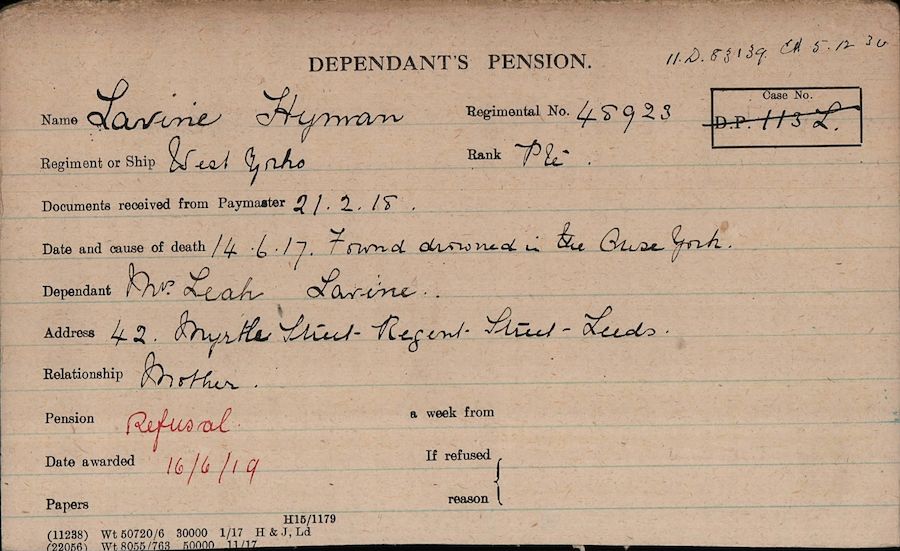 11.D.83139. EH 5.12 30
DEPENDANT'S PENSION.
Name Lavine Hyman Regimental No. 48923 Case No. D.P. 113 L.
Regiment or Ship West Yorks Rank Pte.
Documents received from Paymaster 21.2.18.
Date and cause of death 14.6.17. Found drowned in the Ouse York.
Dependant Mrs. Leah Lavine.
Address 42. Myrtle Street - Regent Street - Leeds.
Relationship Mother.
Pension Refusal. a week from
Date awarded 16/6/19 If refused
Papers reason
H15/1179
(11238) Wt 50720/6 30000 1/17 H & J, Ld
(22056) Wt 8055/763 50000 11/17